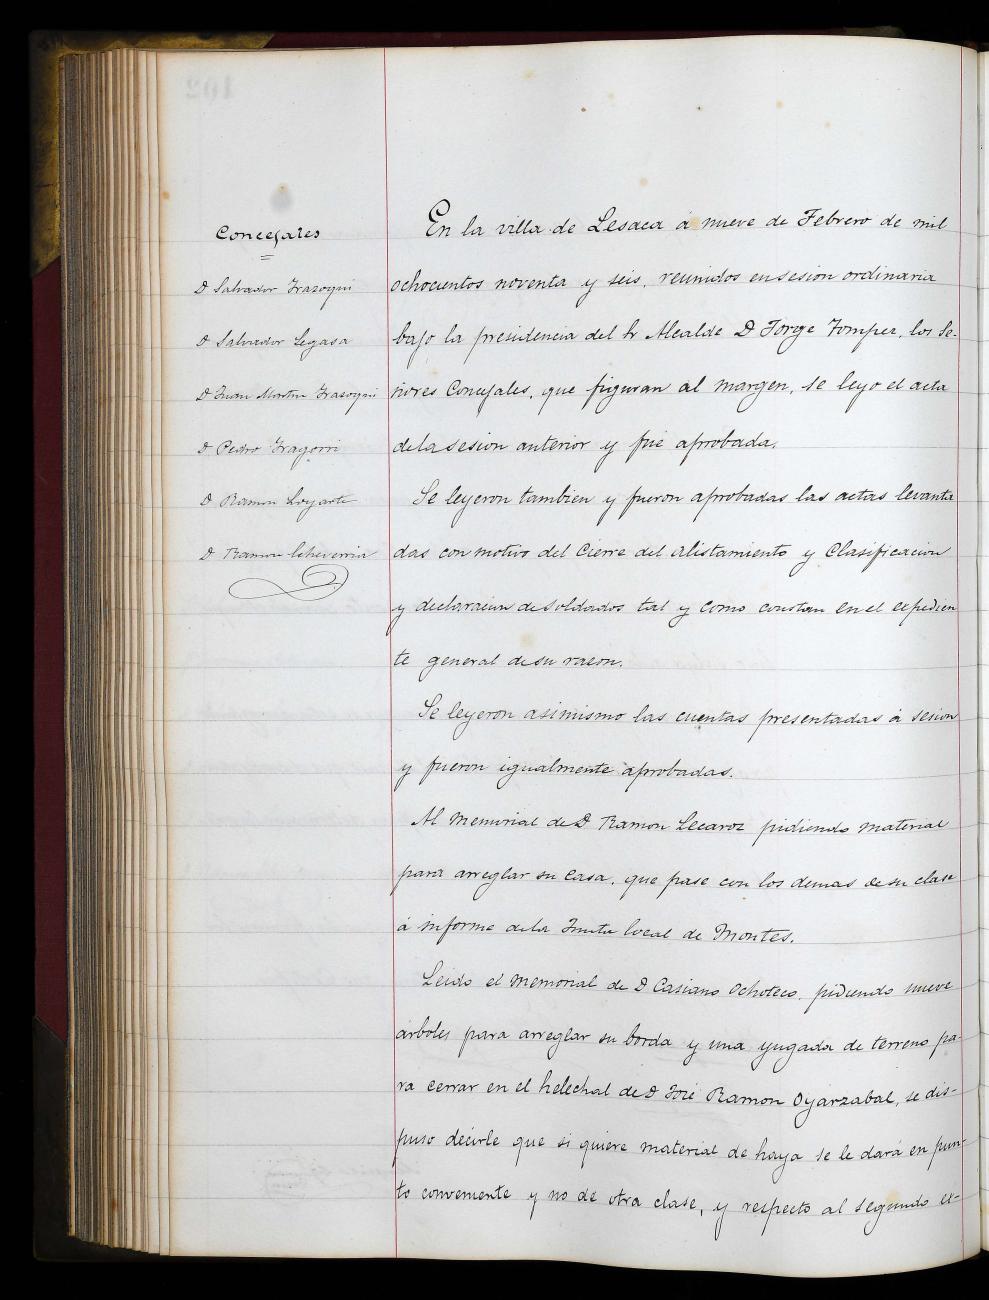 Concejales
D Salvador Irazoqui
D Salvador Legasa
D Juan Martin Irazoqui
D Pedro Iragorri
D Ramon Loyarte
D Ramon Echeverria
En la villa de Lesaca á nueve de Febrero de mil
ochocientos noventa y seis, reunidos en sesion ordinaria
bajo la presidencia del Sr Alcalde D Jorge Tompes, los Se-
ñores Concejales, que figuran al margen, se leyo el acta
de la sesion anterior y fué aprobada.
Se leyeron tambien y fueron aprobadas las actas levanta
das con motivo del Cierre del alistamiento y Clasificacion
y declaracion de soldados tal y como constan en el expedien
te general de su razon.
Se leyeron asimismo las cuentas presentadas á sesion
y fueron igualmente aprobadas.
Al memorial de D Ramon Lecaroz pidiendo material
para arreglar su casa, que pase con los demas de su clase
á informe de la Junta local de Montes.
Leido el memorial de D Casiano Ochoteco, pidiendo nueve
árboles para arreglar su borda y una yugada de terreno pa-
ra cerrar en el helechal de D José Ramon Oyarzabal, se dis-
puso decirle que si quiere material de haya se le dará en pun-
to conveniente y no de otra clase, y respecto al segundo ex-